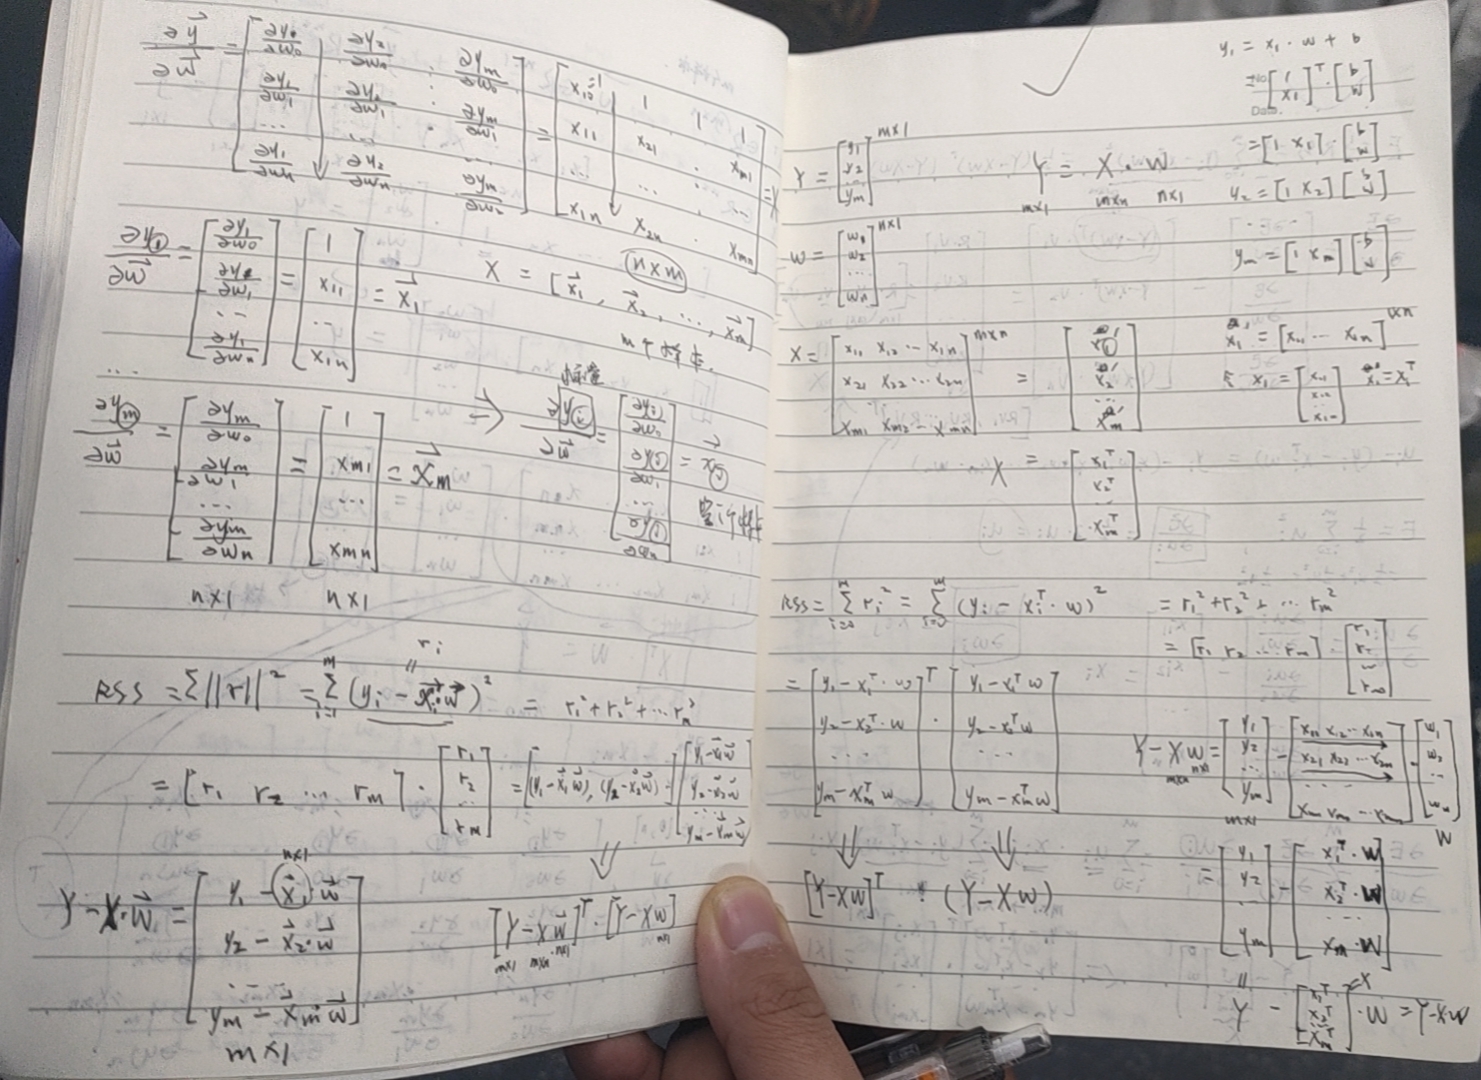 ∂y⃗/∂w⃗ = [∂y₁/∂w₀ ∂y₂/∂w₀ ⋯ ∂yₘ/∂w₀; ∂y₁/∂w₁ ∂y₂/∂w₁ ⋯ ∂yₘ/∂w₁; ⋯; ∂y₁/∂wₙ ∂y₂/∂wₙ] = [1 1 1; x₁₁ x₂₁ xₘ₁; ⋯; x₁ₙ x₂ₙ xₘₙ] = X
∂y₁/∂w⃗ = [∂y₁/∂w₀; ∂y₁/∂w₁; ⋯; ∂y₁/∂wₙ] = [1; x₁₁; ⋯; x₁ₙ] = x⃗₁
X = [x⃗₁, x⃗₂, ⋯, x⃗ₘ]
n×m
m个样本
⋯
∂yₘ/∂w⃗ = [∂yₘ/∂w₀; ∂yₘ/∂w₁; ⋯; ∂yₘ/∂wₙ] = [1; xₘ₁; ⋯; xₘₙ] = x⃗ₘ
n×1 n×1
标量
⇒ ∂yᵢ/∂w⃗ = [∂yᵢ/∂w₀; ∂yᵢ/∂w₁; ⋯; ∂yᵢ/∂wₙ] = x⃗ᵢ
第i个样本
rᵢ
RSS = Σ||r||² = Σᵢ₌₁ᵐ (yᵢ - x⃗ᵢᵀw⃗)² = r₁² + r₂² + ⋯ rₘ²
= [r₁ r₂ ⋯ rₘ] · [r₁; r₂; ⋯; rₘ] = [(y₁-x⃗₁w⃗), (y₂-x⃗₂w⃗) ⋯] [y₁-x⃗₁w⃗; y₂-x⃗₂w⃗; ⋯; yₘ-x⃗ₘw⃗]
n×1
Y - X·w⃗ = [y₁ - x⃗₁·w⃗; y₂ - x⃗₂·w⃗; ⋯; yₘ - x⃗ₘ·w⃗]
m×1
⇓
[Y - Xw⃗]ᵀ · [Y - Xw]
m×1 m×n n×1 n×1
y₁ = x₁ · w + b
No.
= [1; x₁]ᵀ · [b; w]
= [1 x₁] · [b; w]
y₂ = [1 x₂] [b; w]
yₘ = [1 xₘ] [b; w]
Y = [y₁; y₂; ⋯; yₘ] m×1
Y = X · W
m×1 m×n n×1
W = [w₁; w₂; ⋯; wₙ] n×1
X = [x₁₁ x₁₂ ⋯ x₁ₙ; x₂₁ x₂₂ ⋯ x₂ₙ; ⋯; xₘ₁ xₘ₂ ⋯ xₘₙ] m×n = [x₁'; x₂'; ⋯; xₘ']
x₁' = [x₁₁ ⋯ x₁ₙ]
x₁ = [x₁₁; x₁₂; ⋯; x₁ₙ] x₁' = x₁ᵀ
X = [x₁ᵀ; x₂ᵀ; ⋯; xₘᵀ]
RSS = Σᵢ₌₀ᵐ rᵢ² = Σᵢ₌₀ᵐ (yᵢ - xᵢᵀ·w)² = r₁² + r₂² + ⋯ rₘ²
= [r₁ r₂ ⋯ rₘ] · [r₁; r₂; ⋯; rₘ]
= [y₁ - x₁ᵀ·w; y₂ - x₂ᵀ·w; ⋯; yₘ - xₘᵀw]ᵀ · [y₁ - x₁ᵀw; y₂ - x₂ᵀw; ⋯; yₘ - xₘᵀw]
⇓ ⇓
[Y - XW]ᵀ · (Y - XW)
Y - XW = [y₁; y₂; ⋯; yₘ] - [x₁₁ x₁₂ ⋯ x₁ₙ; x₂₁ x₂₂ ⋯ x₂ₙ; ⋯; xₘ₁ xₘ₂ ⋯ xₘₙ] · [w₁; w₂; ⋯; wₙ]
m×1 W
= [y₁; y₂; ⋯; yₘ] - [x₁ᵀ·W; x₂ᵀ·W; ⋯; xₘ·W]
Y - [x₁ᵀ; x₂ᵀ; ⋯; xₘᵀ] · W = Y - X·W
=X